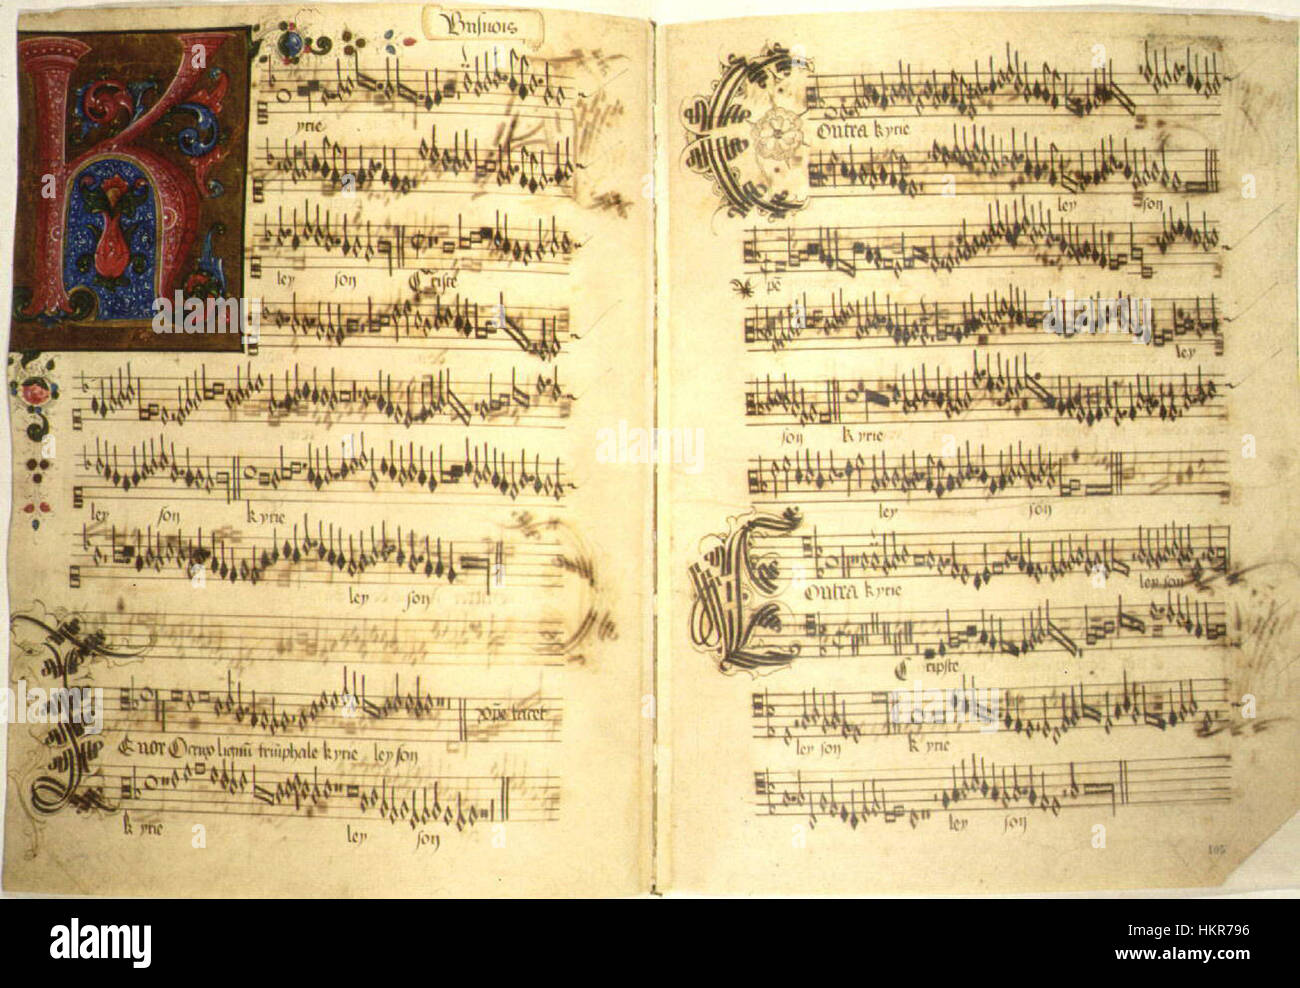 Busnois
K
yrie
ley son Criste
ley son kyrie
ley son
xp̄e tacet
Tenor O crux lignū triūphale kyrie ley son
kyrie ley son
Contra kyrie
ley son
Xpē
ley
son kyrie
ley son
Contra kyrie ley son
Cripste
ley son kyrie
ley son
105
alamy
Image ID: HKR796
www.alamy.com